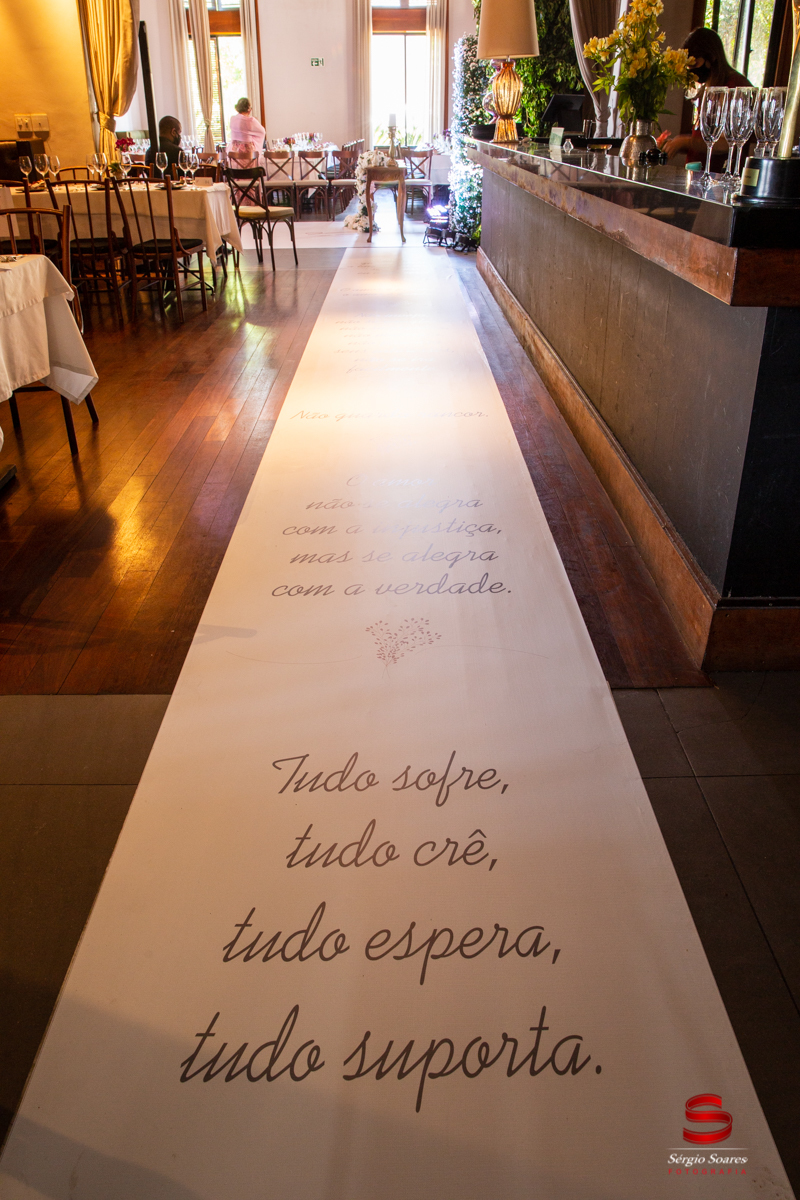 Não
não se alegra
com a injustiça,
mas se alegra
com a verdade.
Tudo sofre,
tudo crê,
tudo espera,
tudo suporta.
Sérgio Soares
FOTOGRAFIA